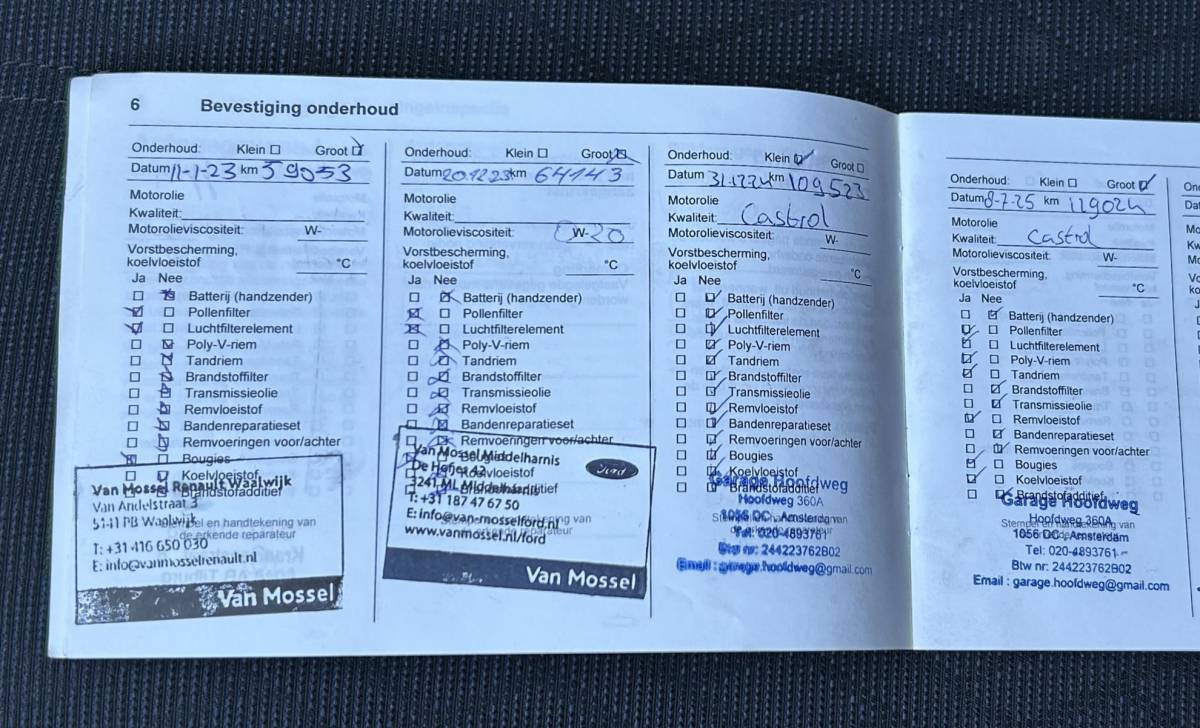 6 Bevestiging onderhoud
Onderhoud: Klein Groot
Datum 11-1-23 km 59053
Motorolie
Kwaliteit:
Motorolieviscositeit: W-
Vorstbescherming,
koelvloeistof °C
Ja Nee
Batterij (handzender)
Pollenfilter
Luchtfilterelement
Poly-V-riem
Tandriem
Brandstoffilter
Transmissieolie
Remvloeistof
Bandenreparatieset
Remvoeringen voor/achter
Bougies
Koelvloeistof
Brandstofadditief
Van Mossel Renault Waalwijk
Van Andelstraat 3
5141 PB Waalwijk
Stempel en handtekening van
de erkende reparateur
T: +31 416 650 030
E: info@vanmosselrenault.nl
Van Mossel
Onderhoud: Klein Groot
Datum 20.12.23 km 64143
Motorolie
Kwaliteit:
Motorolieviscositeit: 0W-20
Vorstbescherming,
koelvloeistof °C
Ja Nee
Batterij (handzender)
Pollenfilter
Luchtfilterelement
Poly-V-riem
Tandriem
Brandstoffilter
Transmissieolie
Remvloeistof
Bandenreparatieset
Remvoeringen voor/achter
Bougies
Koelvloeistof
Brandstofadditief
Van Mossel Middelharnis
3241 ML Middelharnis
T: +31 187 47 67 50
E: info@van-mosselford.nl
www.vanmossel.nl/ford
Ford
Van Mossel
Onderhoud: Klein Groot
Datum 31.12.24 km 109523
Motorolie
Kwaliteit: Castrol
Motorolieviscositeit: W-
Vorstbescherming,
koelvloeistof °C
Ja Nee
Batterij (handzender)
Pollenfilter
Luchtfilterelement
Poly-V-riem
Tandriem
Brandstoffilter
Transmissieolie
Remvloeistof
Bandenreparatieset
Remvoeringen voor/achter
Bougies
Koelvloeistof
Brandstofadditief
Garage Hoofdweg
Hoofdweg 360A
1056 DC Amsterdam
Tel: 020-4893761
Btw nr: 244223762B02
Email : garage.hoofdweg@gmail.com
Onderhoud: Klein Groot
Datum 8-7-25 km 129024
Motorolie
Kwaliteit: Castrol
Motorolieviscositeit: W-
Vorstbescherming,
koelvloeistof °C
Ja Nee
Batterij (handzender)
Pollenfilter
Luchtfilterelement
Poly-V-riem
Tandriem
Brandstoffilter
Transmissieolie
Remvloeistof
Bandenreparatieset
Remvoeringen voor/achter
Bougies
Koelvloeistof
Brandstofadditief
Garage Hoofdweg
Hoofdweg 360A
1056 DC Amsterdam
Tel: 020-4893761
Btw nr: 244223762B02
Email : garage.hoofdweg@gmail.com